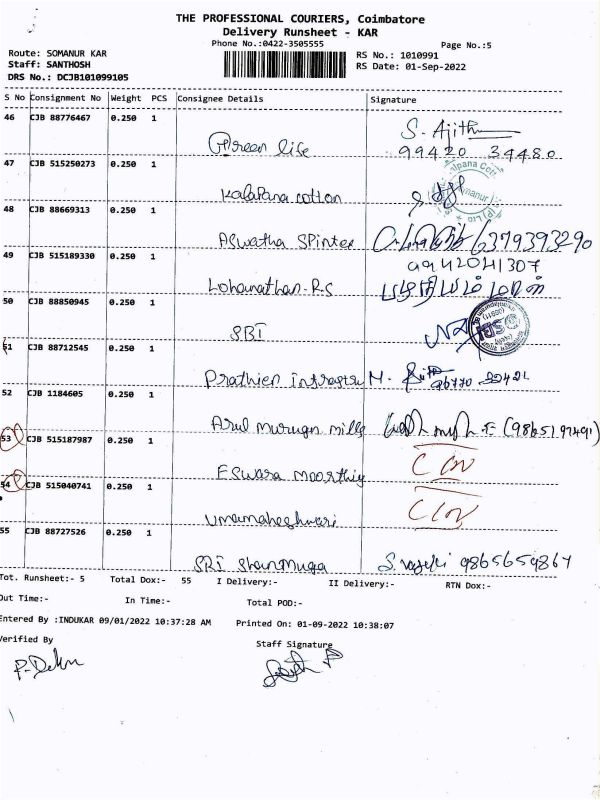 THE PROFESSIONAL COURIERS, Coimbatore
Delivery Runsheet - KAR
Phone No.:0422-3505555
Page No.:5
Route: SOMANUR KAR
Staff: SANTHOSH
DRS No.: DCJB101099105
RS No.: 1010991
RS Date: 01-Sep-2022
S No Consignment No Weight PCS Consignee Details Signature
46 CJB 88776467 0.250 1
Green life S. Ajith
99420 34480
47 CJB 515250273 0.250 1
Kalapana cotton
48 CJB 88669313 0.250 1
Aswatha Spintex 6379393290
49 CJB 515189330 0.250 1
9942041307
Lohanathan-RS
50 CJB 88850945 0.250 1
SBI
SBI
51 CJB 88712545 0.250 1
Prathien M.
52 CJB 1184605 0.250 1
Arul murugn mills
53 CJB 515187987 0.250 1
Eswara moorthiy
54 CJB 515040741 0.250 1
umamaheshwari
55 CJB 88727526 0.250 1
SRI Shanmuga 9865659867
Tot. Runsheet:- 5 Total Dox:- 55 I Delivery:- II Delivery:- RTN Dox:-
Out Time:- In Time:- Total POD:-
Entered By :INDUKAR 09/01/2022 10:37:28 AM Printed On: 01-09-2022 10:38:07
Verified By Staff Signature